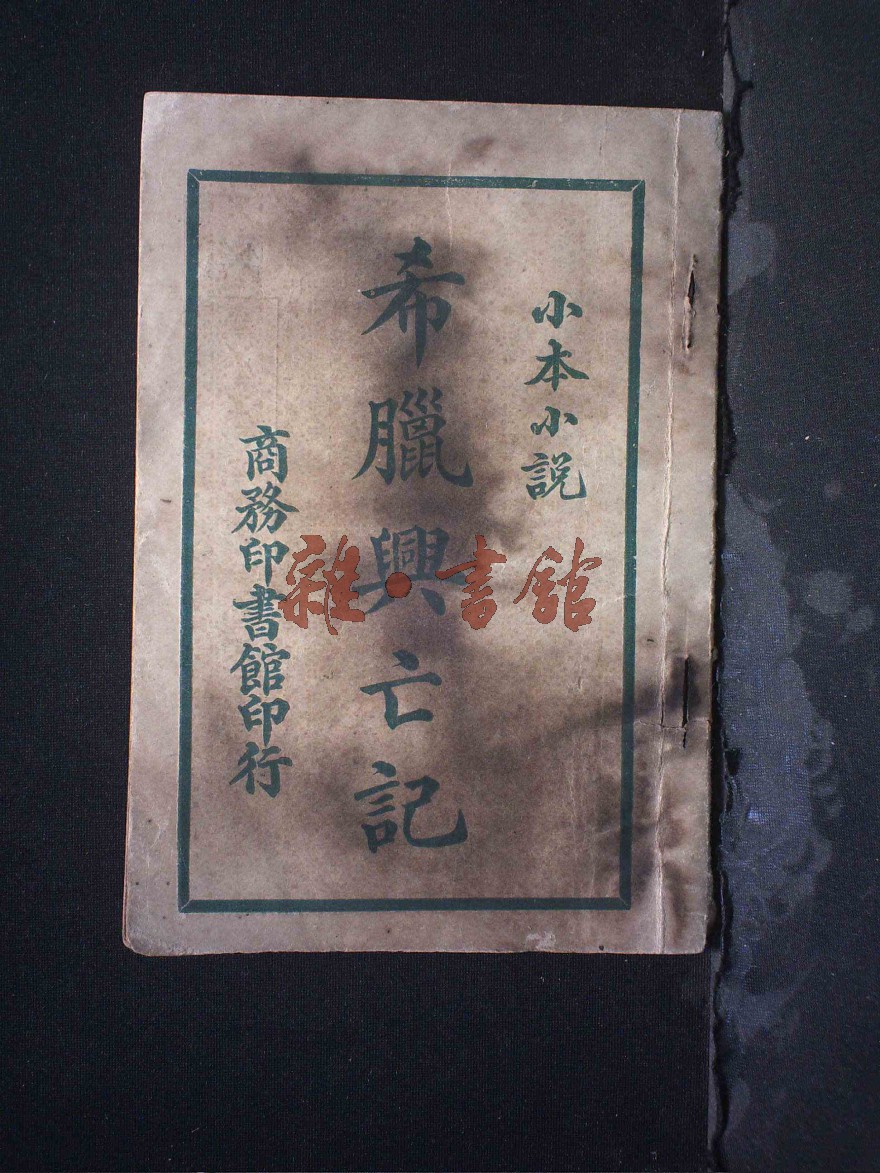 小本小説
希臘興亡記
商務印書館印行
雜·書館